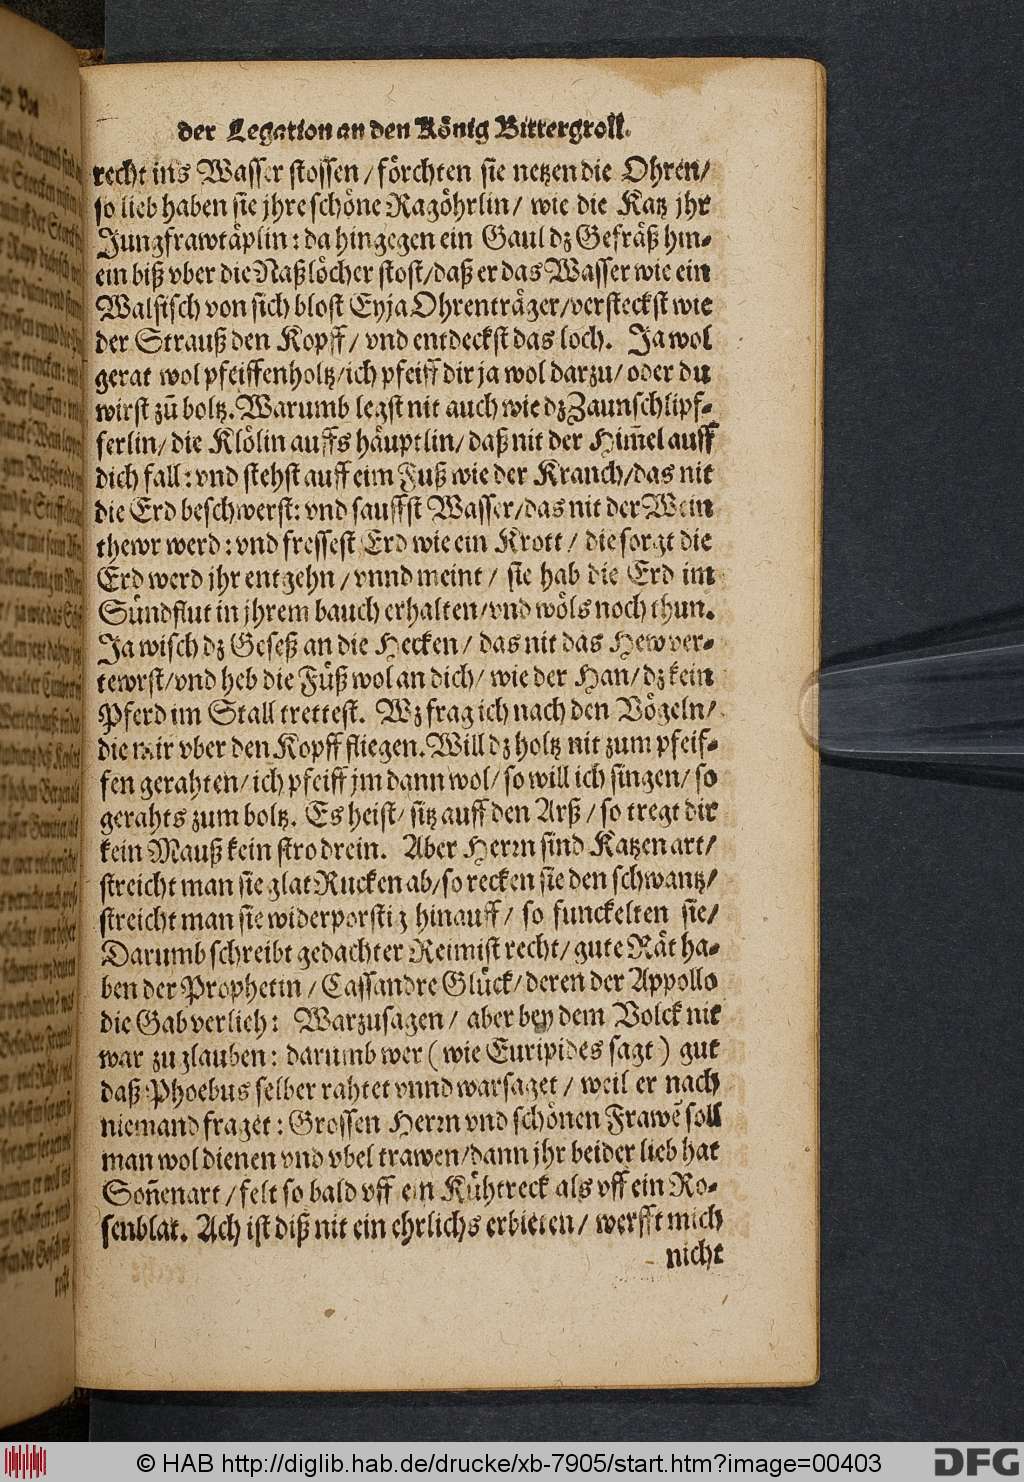 der Legation an den König Bittergroll.
recht ins Wasser stossen / förchten sie netzen die Ohren /
so lieb haben sie jhre schöne Ragöhrlin / wie die Katz jhr
Jungfrawtäplin : da hingegen ein Gaul dz Gefräß hin-
ein biß vber die Naßlöcher stost / daß er das Wasser wie ein
Walfisch von sich blost Eyja Ohrenträger / versteckst wie
der Strauß den Kopff / vnd entdeckst das loch. Ja wol
gerat wol pfeiffenholtz / ich pfeiff dir ja wol darzu / oder du
wirst zū boltz. Warumb legst nit auch wie dz Zaunschlipf-
ferlin / die Klölin auffs häuptlin / daß nit der Him̄el auff
dich fall : vnd stehst auff eim Fuß wie der Kranch / das nit
die Erd beschwerst : vnd sauffst Wasser / das nit der Wein
thewr werd : vnd fressest Erd wie ein Krott / die sorgt die
Erd werd jhr entgehn / vnnd meint / sie hab die Erd im
Sündflut in jhrem bauch erhalten / vnd wöls noch thun.
Ja wisch dz Geseß an die Hecken / das nit das Hew ver-
tewrst / vnd heb die Füß wol an dich / wie der Han / dz kein
Pferd im Stall trettest. Wz frag ich nach den Vögeln /
die mir vber den Kopff fliegen. Will dz holtz nit zum pfeif-
fen gerahten / ich pfeiff jm dann wol / so will ich singen / so
gerahts zum boltz. Es heist / sitz auff den Arß / so tregt dir
kein Mauß kein stro drein. Aber Herrn sind Katzen art /
streicht man sie glat Rucken ab / so recken sie den schwantz /
streicht man sie widerporstig hinauff / so funckelten sie /
Darumb schreibt gedachter Reimist recht / gute Rät ha-
ben der Prophetin / Cassandre Glück / deren der Appollo
die Gab verlieh : Warzusagen / aber bey dem Volck nit
war zu glauben : darumb wer ( wie Euripides sagt ) gut
daß Phoebus selber rahtet vnnd warsaget / weil er nach
niemand fraget : Grossen Herrn vnd schönen Frawē soll
man wol dienen vnd vbel trawen / dann jhr beider lieb hat
Son̄enart / felt so bald vff ein Kühtreck als vff ein Ro-
senblat. Ach ist diß nit ein ehrlichs erbieten / werfft mich
nicht
© HAB http://diglib.hab.de/drucke/xb-7905/start.htm?image=00403
DFG